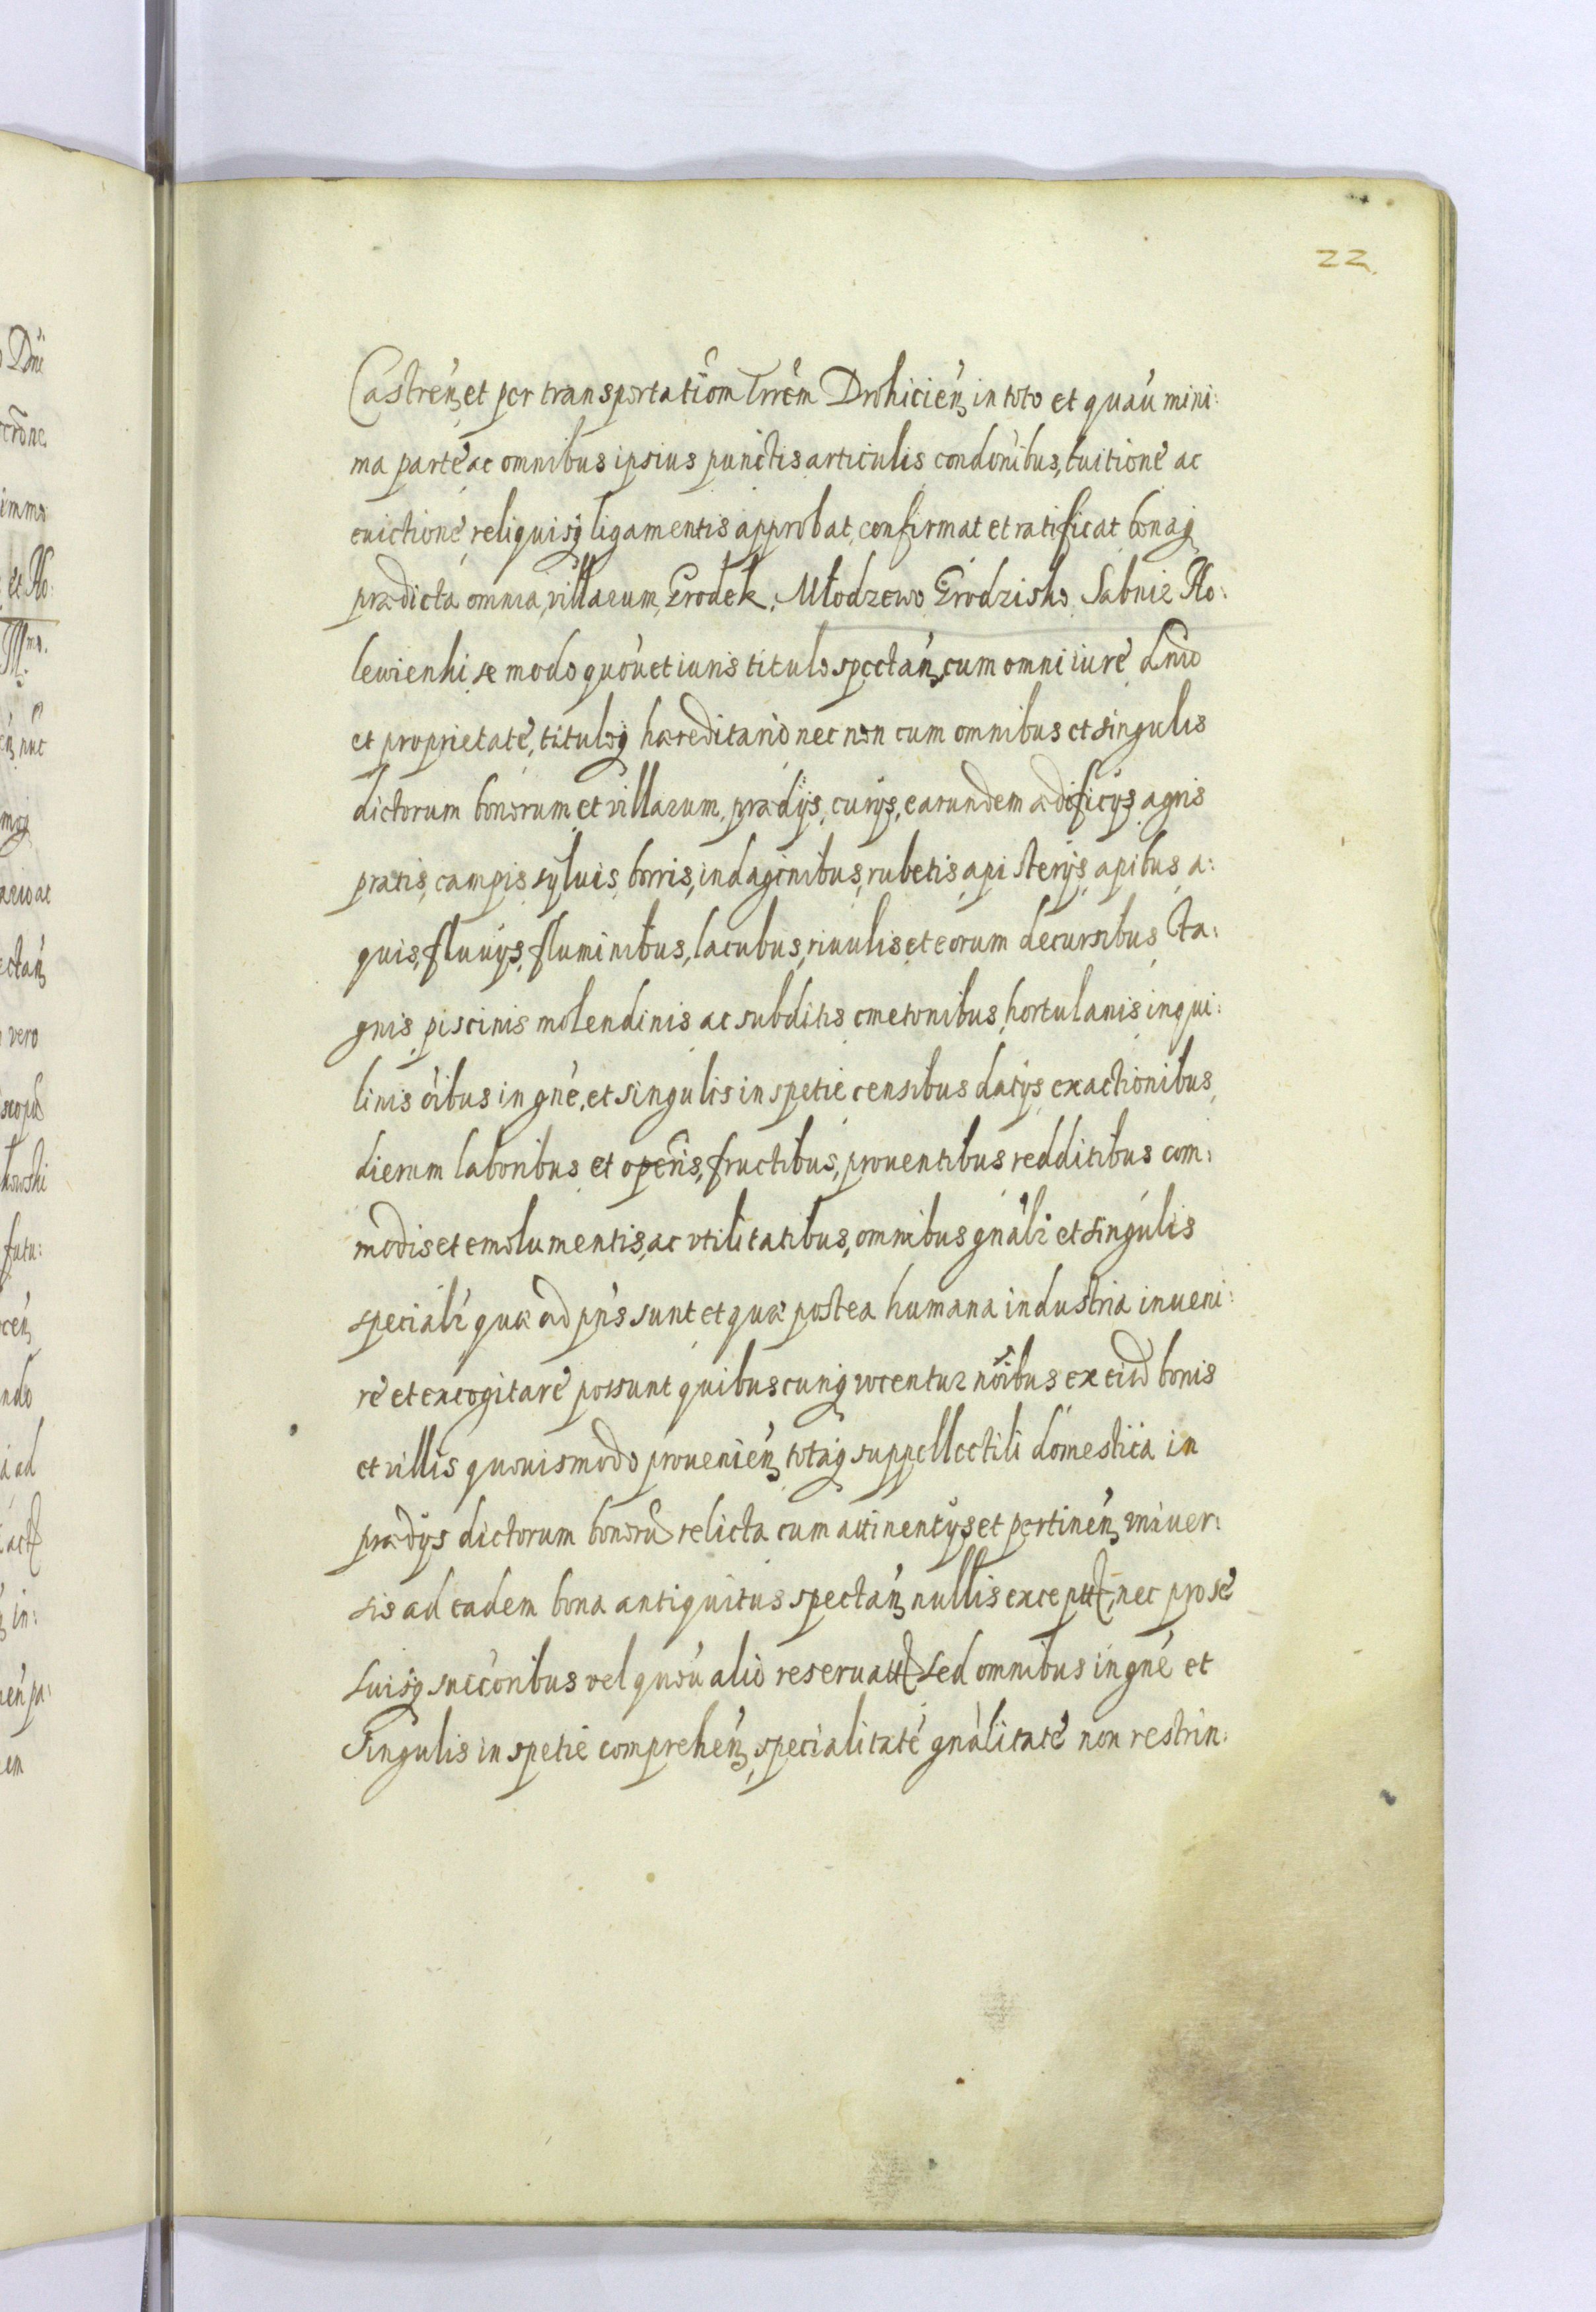 22
Castren̄ et per transportatiōm Trrēm Drohicień in toto et quaú mini:
ma parte ac omnibus ipsius punctis articulis condōnibus, tuitione ac
euictione reliquisq ligamentis approbat, confirmat et ratificat bonaq
prædicta omnia, villarum, Grodek, Młodzewo Grodzisko Sabnie Ho:
lewienki, se modo quoúet iuris titulo spectań, cum omni iure Dnio
et proprietate, tituloq hæreditario nec non cum omnibus et singulis
dictorum bonorum et villarum, prædÿs, curÿs, earundem ædificÿs agris
pratis, campis syluis, borris, indaginibus, rubetis, apisterÿs, apibus, a:
quis, fluuÿs, fluminibus, lacubus, riuulis et eorum decursibus Sta:
gnis piscinis molendinis ac subditis cmetonibus, hortulanis inqui:
linis óibus in gńe, et singulis in spetie censibus datÿs exactionibus,
dierum laboribus et operis, fructibus, prouentibus redditibus com:
modis et emolumentis, ac vtilitatibus, omnibus gnálr et singulis
specialr quæ ad pńs sunt et quæ postea humana industria inueni:
re et excogitare possunt quibuscunq vocentur nōibus ex eisd bonis
et villis quouismodo prouenień totaq suppellectili domestica in
prædÿs dictorum bonorū relicta cum attinentÿs et pertineń vniuer:
sis ad eadem bona antiquitus spectań nullis exceptt, nec pro se
suisq succ̄oribus vel quoú alio reseruatt sed omnibus in gńe et
Singulis in spetie compreheń, specialitate gnálitate non restrin: